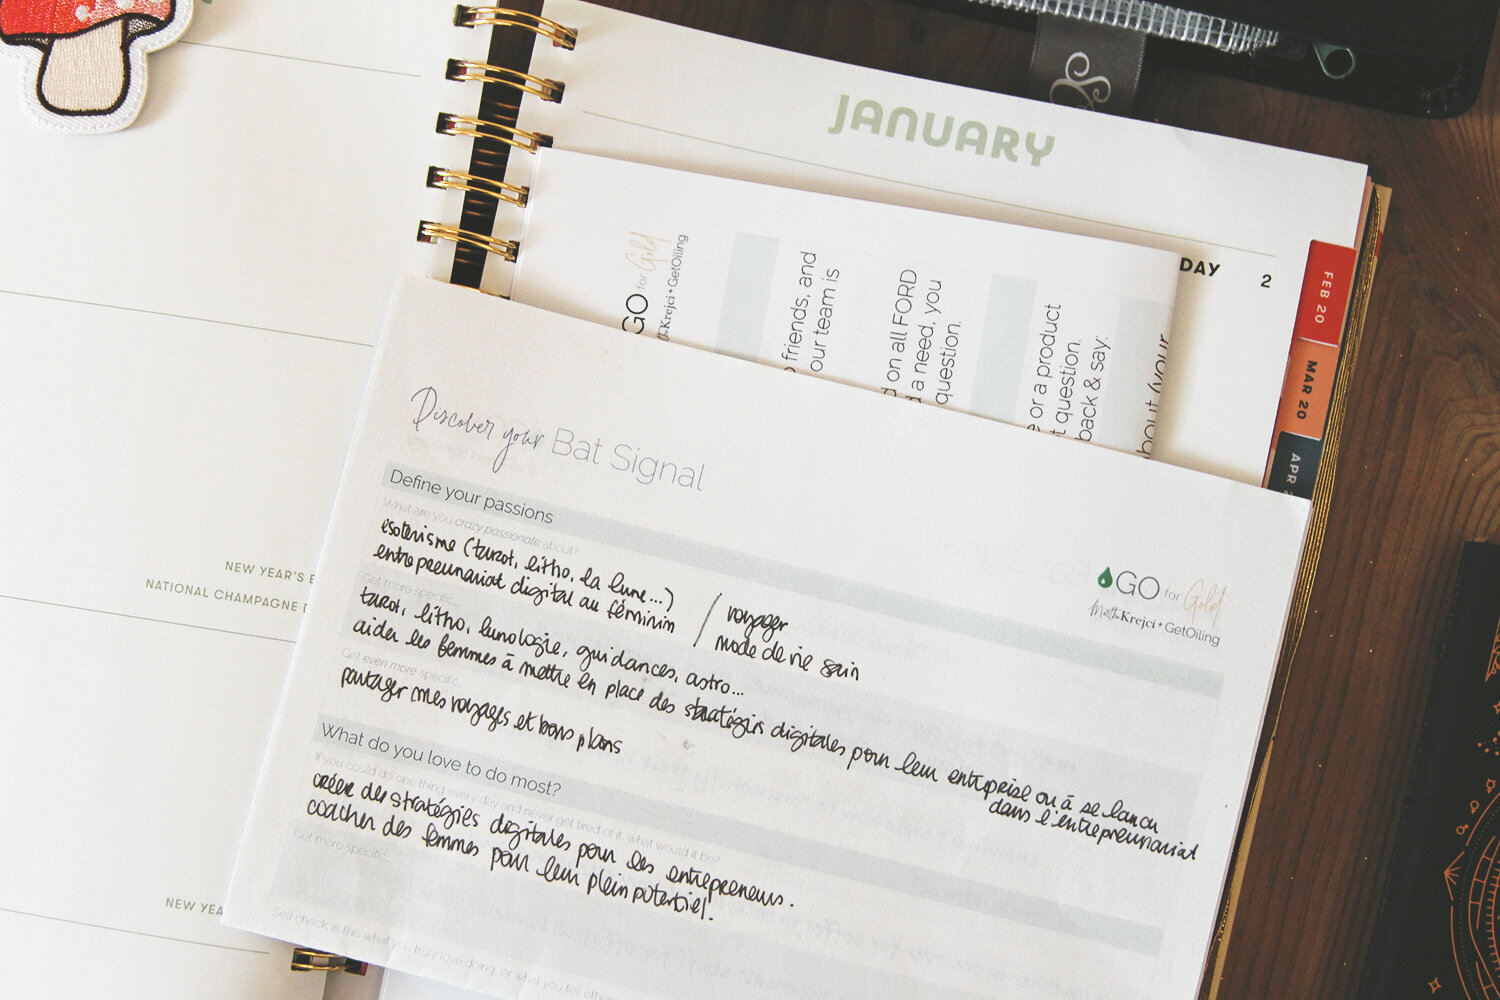 JANUARY
DAY 2
FEB 20
MAR 20
APR
GO for Gold
Krejci + GetOiling
friends, and
our team is
on all FORD
a need, you
question.
e or a product
t question.
back & say:
about (your
NEW YEAR'S E
NATIONAL CHAMPAGNE D
NEW YEA
Discover your Bat Signal
GO for Gold
Martha Krejci + GetOiling
Define your passions
What are you crazy passionate about?
esotérisme (tarot, litho, la lune...)
entrepreunariat digital au féminin
/ voyager
mode de vie sain
Get more specific.
tarot, litho, lunologie, guidances, astro...
aider les femmes à mettre en place des stratégies digitales pour leur entreprise ou à se lancer
dans l'entrepreunariat
Get even more specific.
partager mes voyages et bons plans
What do you love to do most?
If you could do one thing every day and never get tired of it, what would it be?
créer des stratégies digitales pour les entrepreneurs.
coacher des femmes pour leur plein potentiel.
Get more specific.
Self check: is this what you truly love doing, or what you tell others